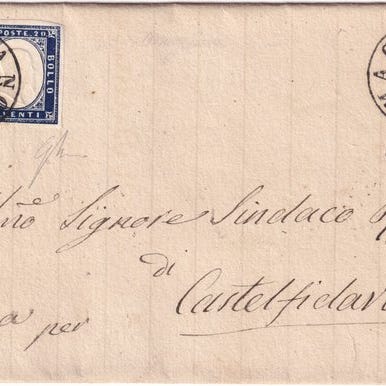 POSTE. 20
BOLLO
ENTI
A
N
Signore Sindaco
di
Castelfidar
per